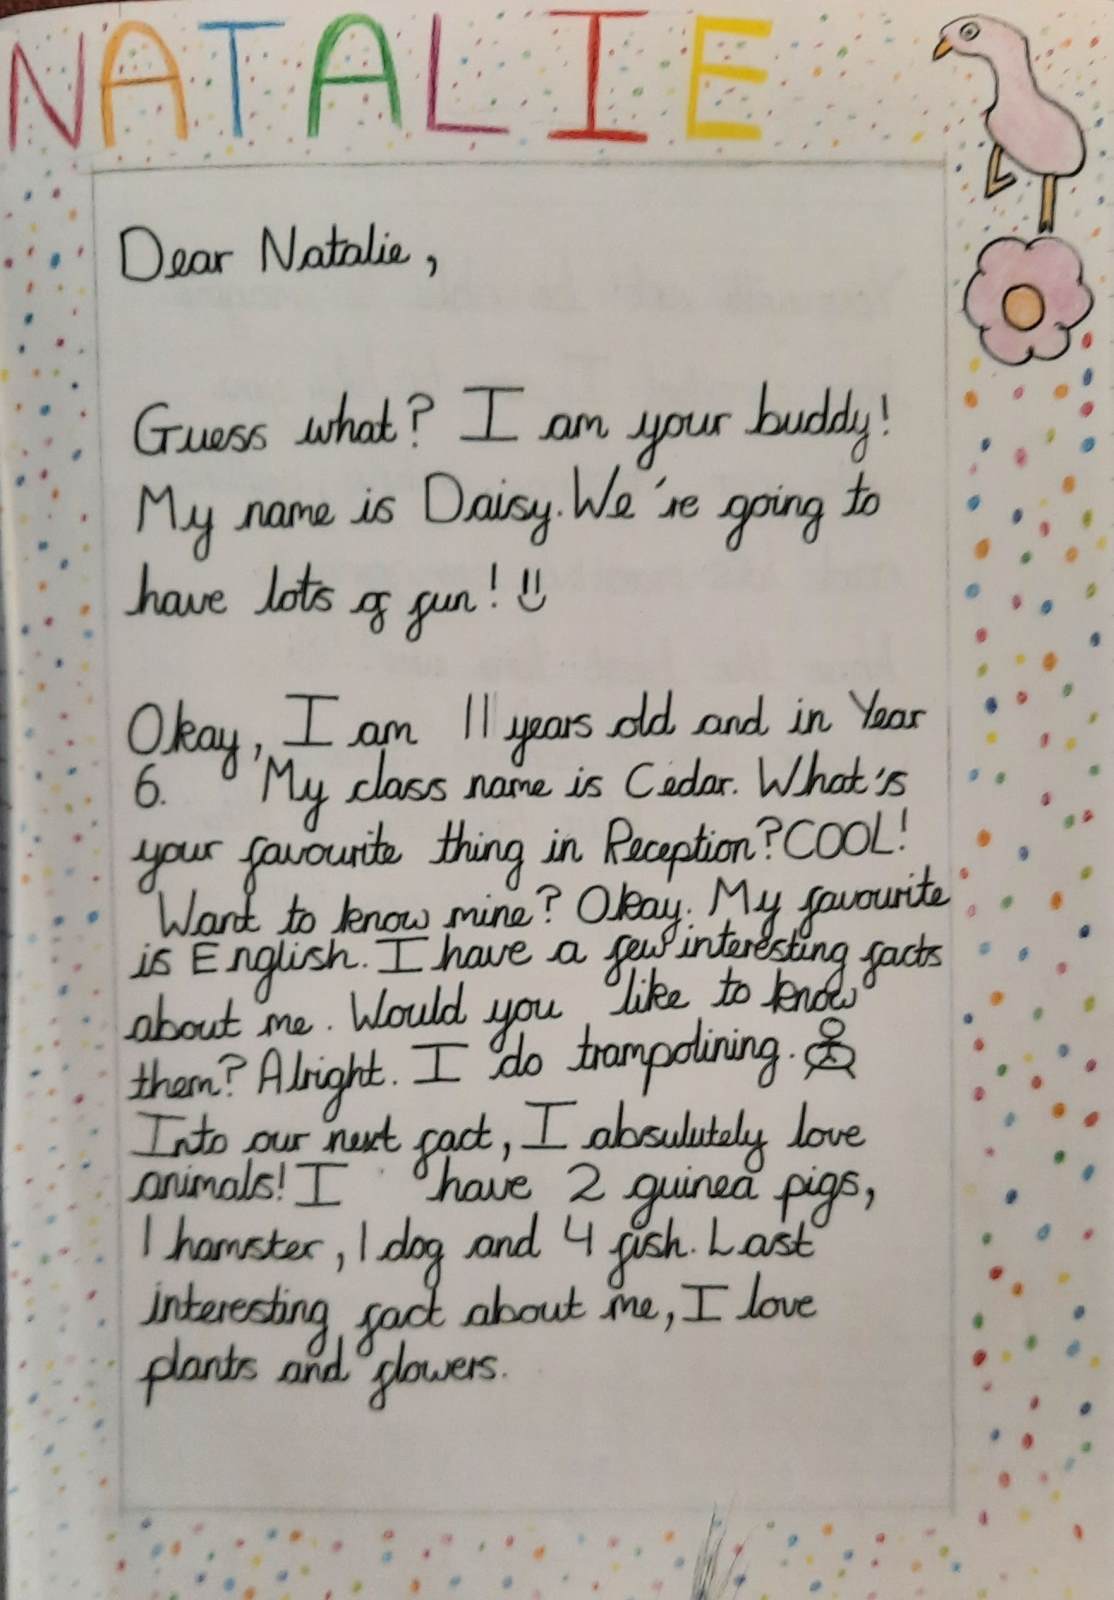 NATALIE
Dear Natalie,
Guess what? I am your buddy!
My name is Daisy. We're going to
have lots of fun!
Okay, I am 11 years old and in Year
6. My class name is Cedar. What's
your favourite thing in Reception? COOL!
Want to know mine? Okay. My favourite
is English. I have a few interesting facts
about me. Would you like to know
them? Alright. I do trampolining.
Into our next fact, I absulutely love
animals! I have 2 guinea pigs,
1 hamster, 1 dog and 4 fish. Last
interesting fact about me, I love
plants and flowers.